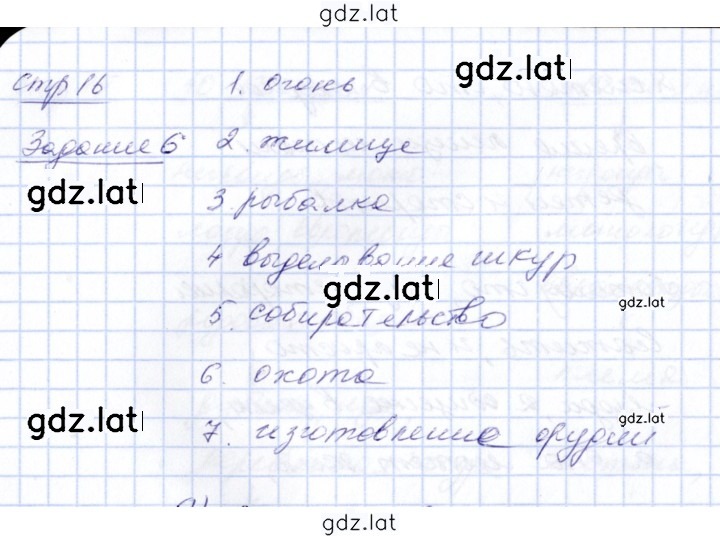 gdz.lat
gdz.lat
стр 16 1. огонь
Задание 6 2. жилище
gdz.lat
3 рыбалка
4 выделывание шкур
gdz.lat
gdz.lat
5. собирательство
6. охота
gdz.lat
gdz.lat
7. изготовление орудий
gdz.lat